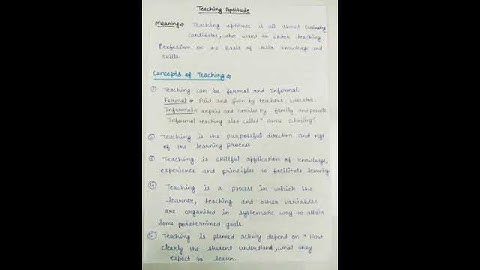 Teaching Aptitude
Meaning → Teaching aptitude is all about evaluating
candidates, who want to enter teaching
Profession on the basis of their knowledge and
skills.
Concepts of Teaching →
① Teaching can be formal and Informal.
Formal → Paid and given by teachers,
Informal → unpaid and carried by family and parents
Informal teaching also called
② Teaching is the purposeful direction and
of the learning process
③ Teaching is skillful application of knowledge,
experience and principles to facilitate learning
④ Teaching is a process in which the
learner, teaching and other variables
are organised in systematic way to attain
some predetermined goals.
Teaching is planned activity depend on "How
clearly the student understand, what they
expect to learn.